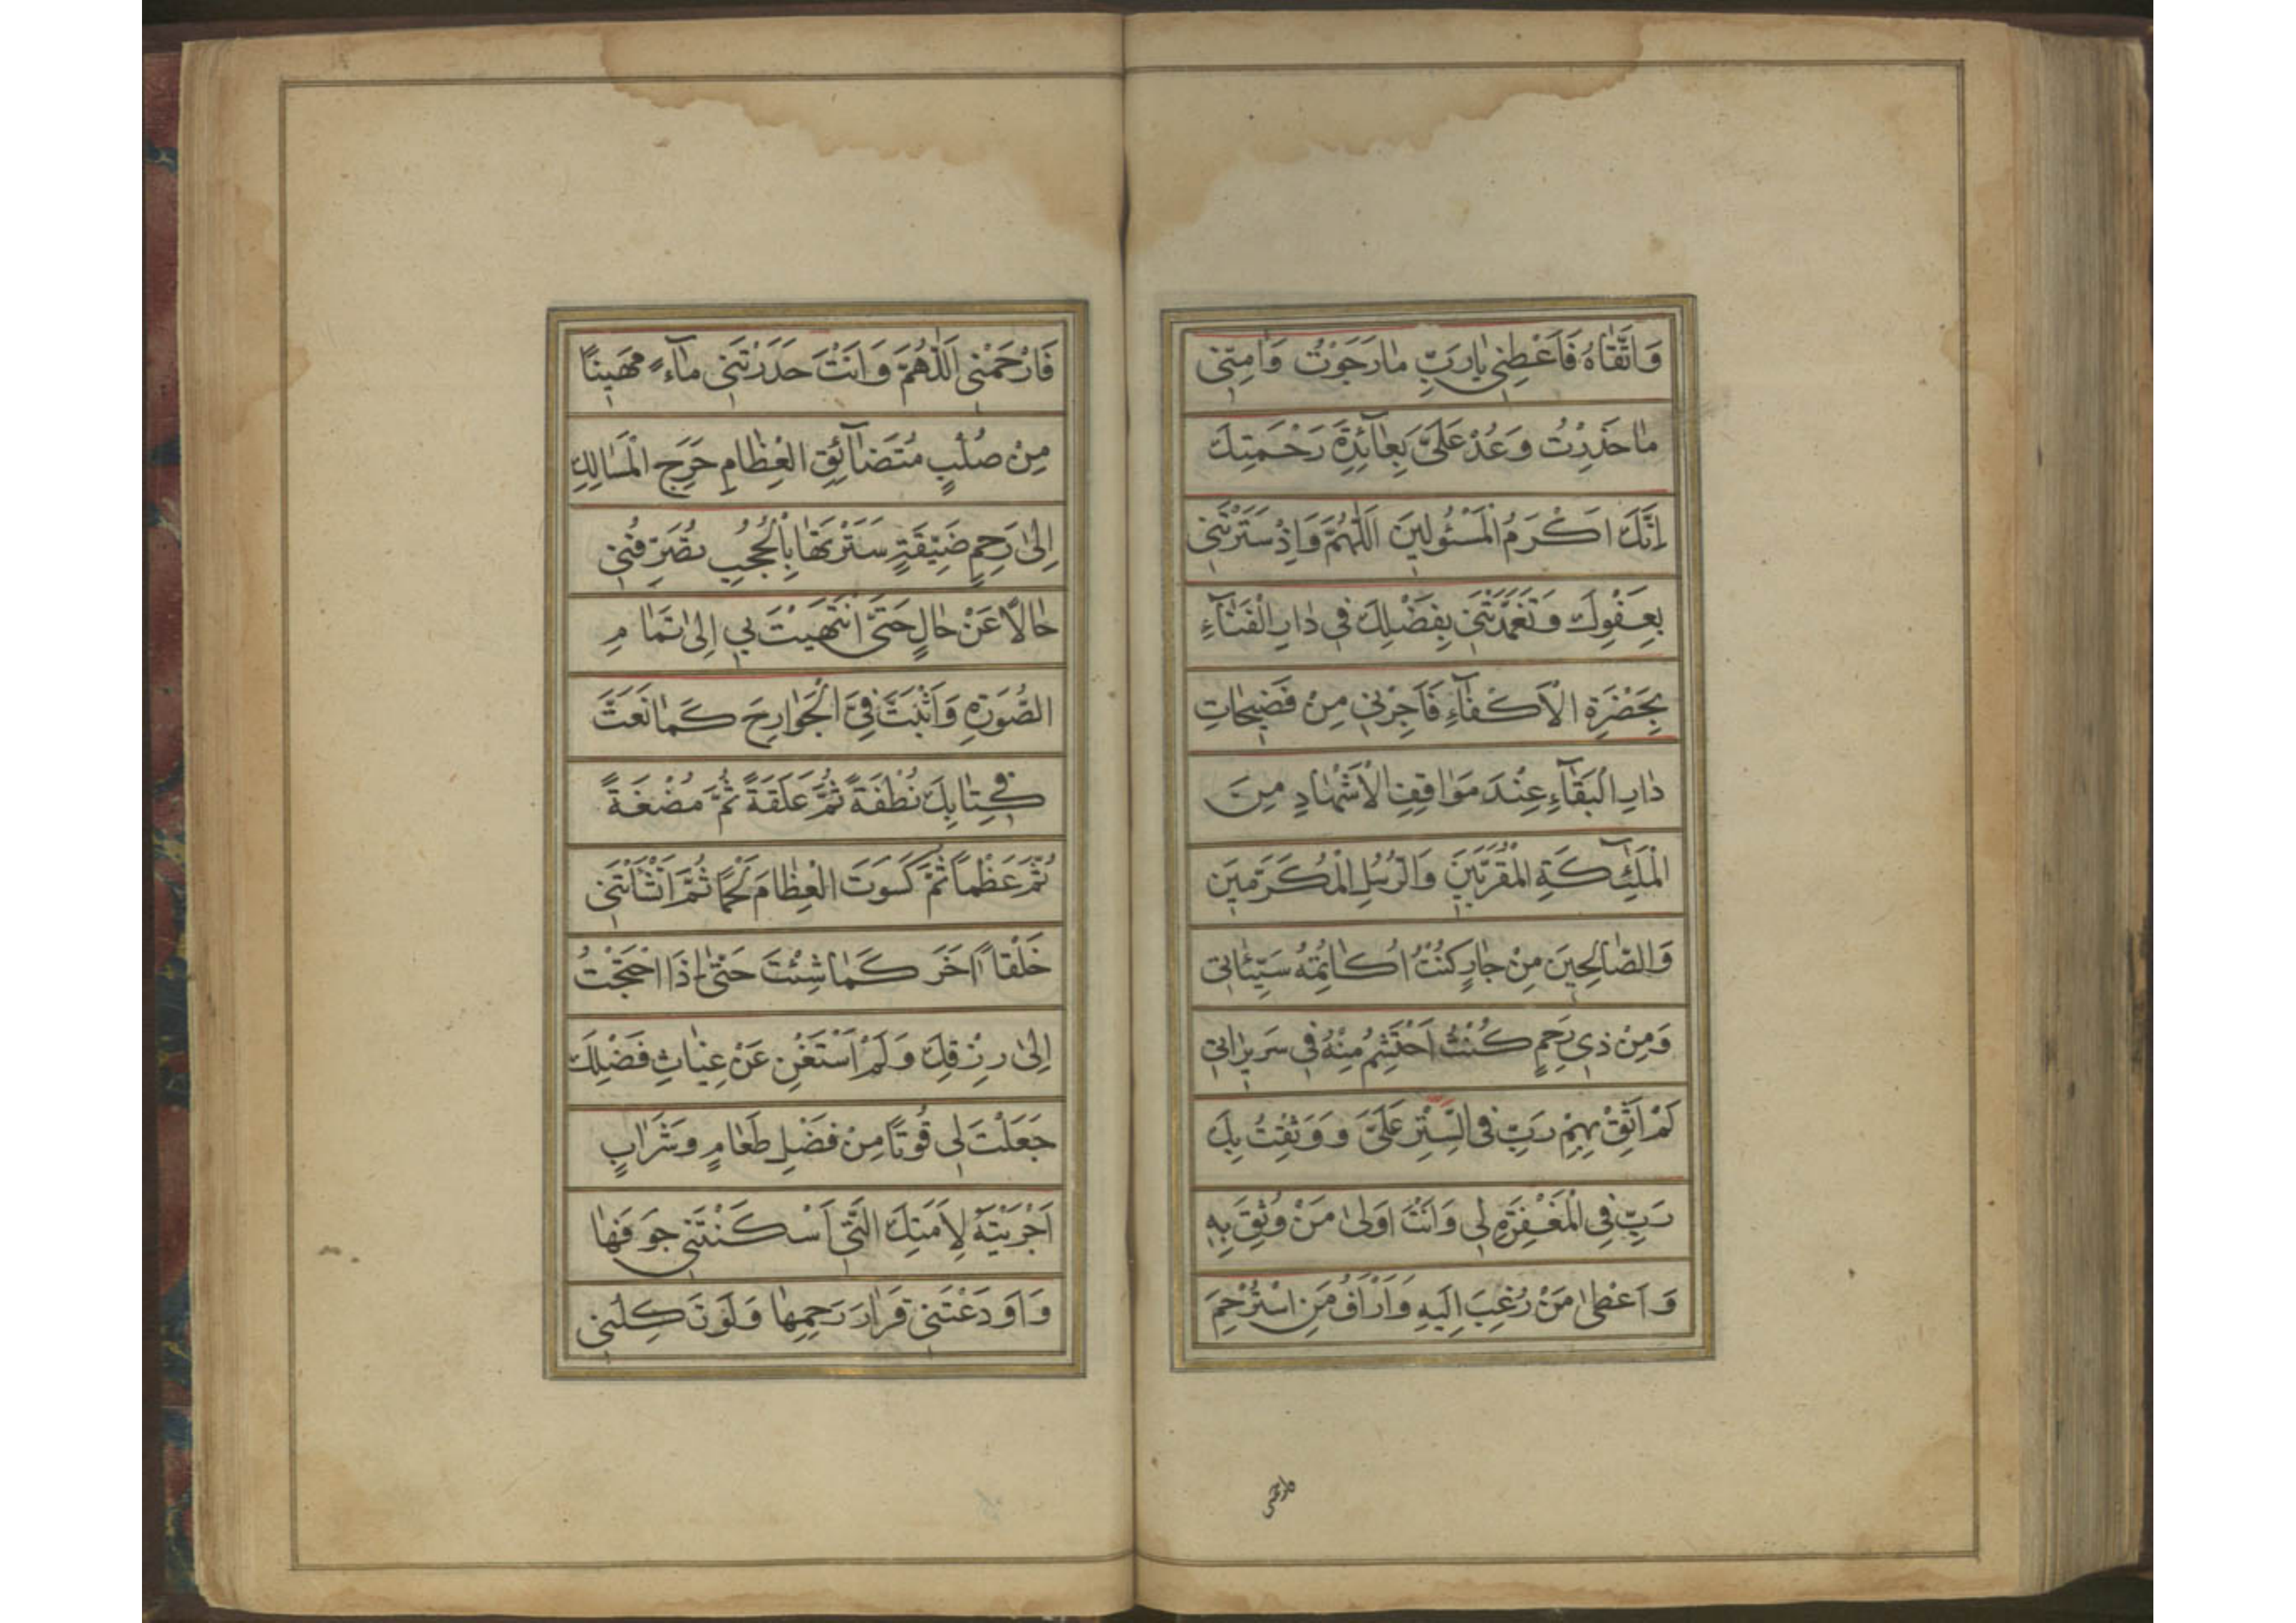 وَاتَّقَاهُ فَاَعْطِنِي يَارَبِّ مَا رَجَوْتُ وَاٰمِنّي
مَا حَذِرْتُ وَعُدْ عَلَيَّ بِعَآئِدَةِ رَحْمَتِكَ
اِنَّكَ اَكْرَمُ الْمَسْئُولِينَ اَللّٰهُمَّ وَاِذْ سَتَرْتَنِي
بِعَفْوِكَ وَتَغَمَّدْتَنِي بِفَضْلِكَ فِي دَارِ الْفَنَآءِ
بِحَضْرَةِ الْاَكْفَآءِ فَاَجِرْنِي مِنْ فَضِيحَاتِ
دَارِ الْبَقَآءِ عِنْدَ مَوَاقِفِ الْاَشْهَادِ مِنَ
الْمَلٰٓئِكَةِ الْمُقَرَّبِينَ وَالرُّسُلِ الْمُكَرَّمِينَ
وَالصَّالِحِينَ مِنْ جَارٍ كُنْتُ اُكَاتِمُهُ سَيِّئَاتِي
وَمِنْ ذِي رَحِمٍ كُنْتُ اَحْتَشِمُ مِنْهُ فِي سَرِيرَاتِي
لَمْ اَثِقْ بِهِمْ رَبِّ فِي السِّتْرِ عَلَيَّ وَوَثِقْتُ بِكَ
رَبِّ فِي الْمَغْفِرَةِ لِي وَاَنْتَ اَوْلٰى مَنْ وُثِقَ بِهِ
وَاَعْطٰى مَنْ رُغِبَ اِلَيْهِ وَاَرْاَفُ مَنِ اسْتُرْحِمَ
فارحمني
فَارْحَمْنِي اَللّٰهُمَّ وَاَنْتَ حَدَرْتَنِي مَآءً مَهِينًا
مِنْ صُلْبٍ مُتَضَآئِقِ الْعِظَامِ حَرِجِ الْمَسَالِكِ
اِلٰى رَحِمٍ ضَيِّقَةٍ سَتَرْتَهَا بِالْحُجُبِ تُصَرِّفُنِي
حَالًا عَنْ حَالٍ حَتّٰى انْتَهَيْتَ بِي اِلٰى تَمَامِ
الصُّورَةِ وَاَثْبَتَّ فِيَّ الْجَوَارِحَ كَمَا نَعَتَّ
فِي كِتَابِكَ نُطْفَةً ثُمَّ عَلَقَةً ثُمَّ مُضْغَةً
ثُمَّ عَظْمًا ثُمَّ كَسَوْتَ الْعِظَامَ لَحْمًا ثُمَّ اَنْشَاْتَنِي
خَلْقًا اٰخَرَ كَمَا شِئْتَ حَتّٰى اِذَا احْتَجْتُ
اِلٰى رِزْقِكَ وَلَمْ اَسْتَغْنِ عَنْ غِيَاثِ فَضْلِكَ
جَعَلْتَ لِي قُوتًا مِنْ فَضْلِ طَعَامٍ وَشَرَابٍ
اَجْرَيْتَهُ لِاَمَتِكَ الَّتِي اَسْكَنْتَنِي جَوْفَهَا
وَاَوْدَعْتَنِي قَرَارَ رَحِمِهَا وَلَوْ تَكِلْنِي